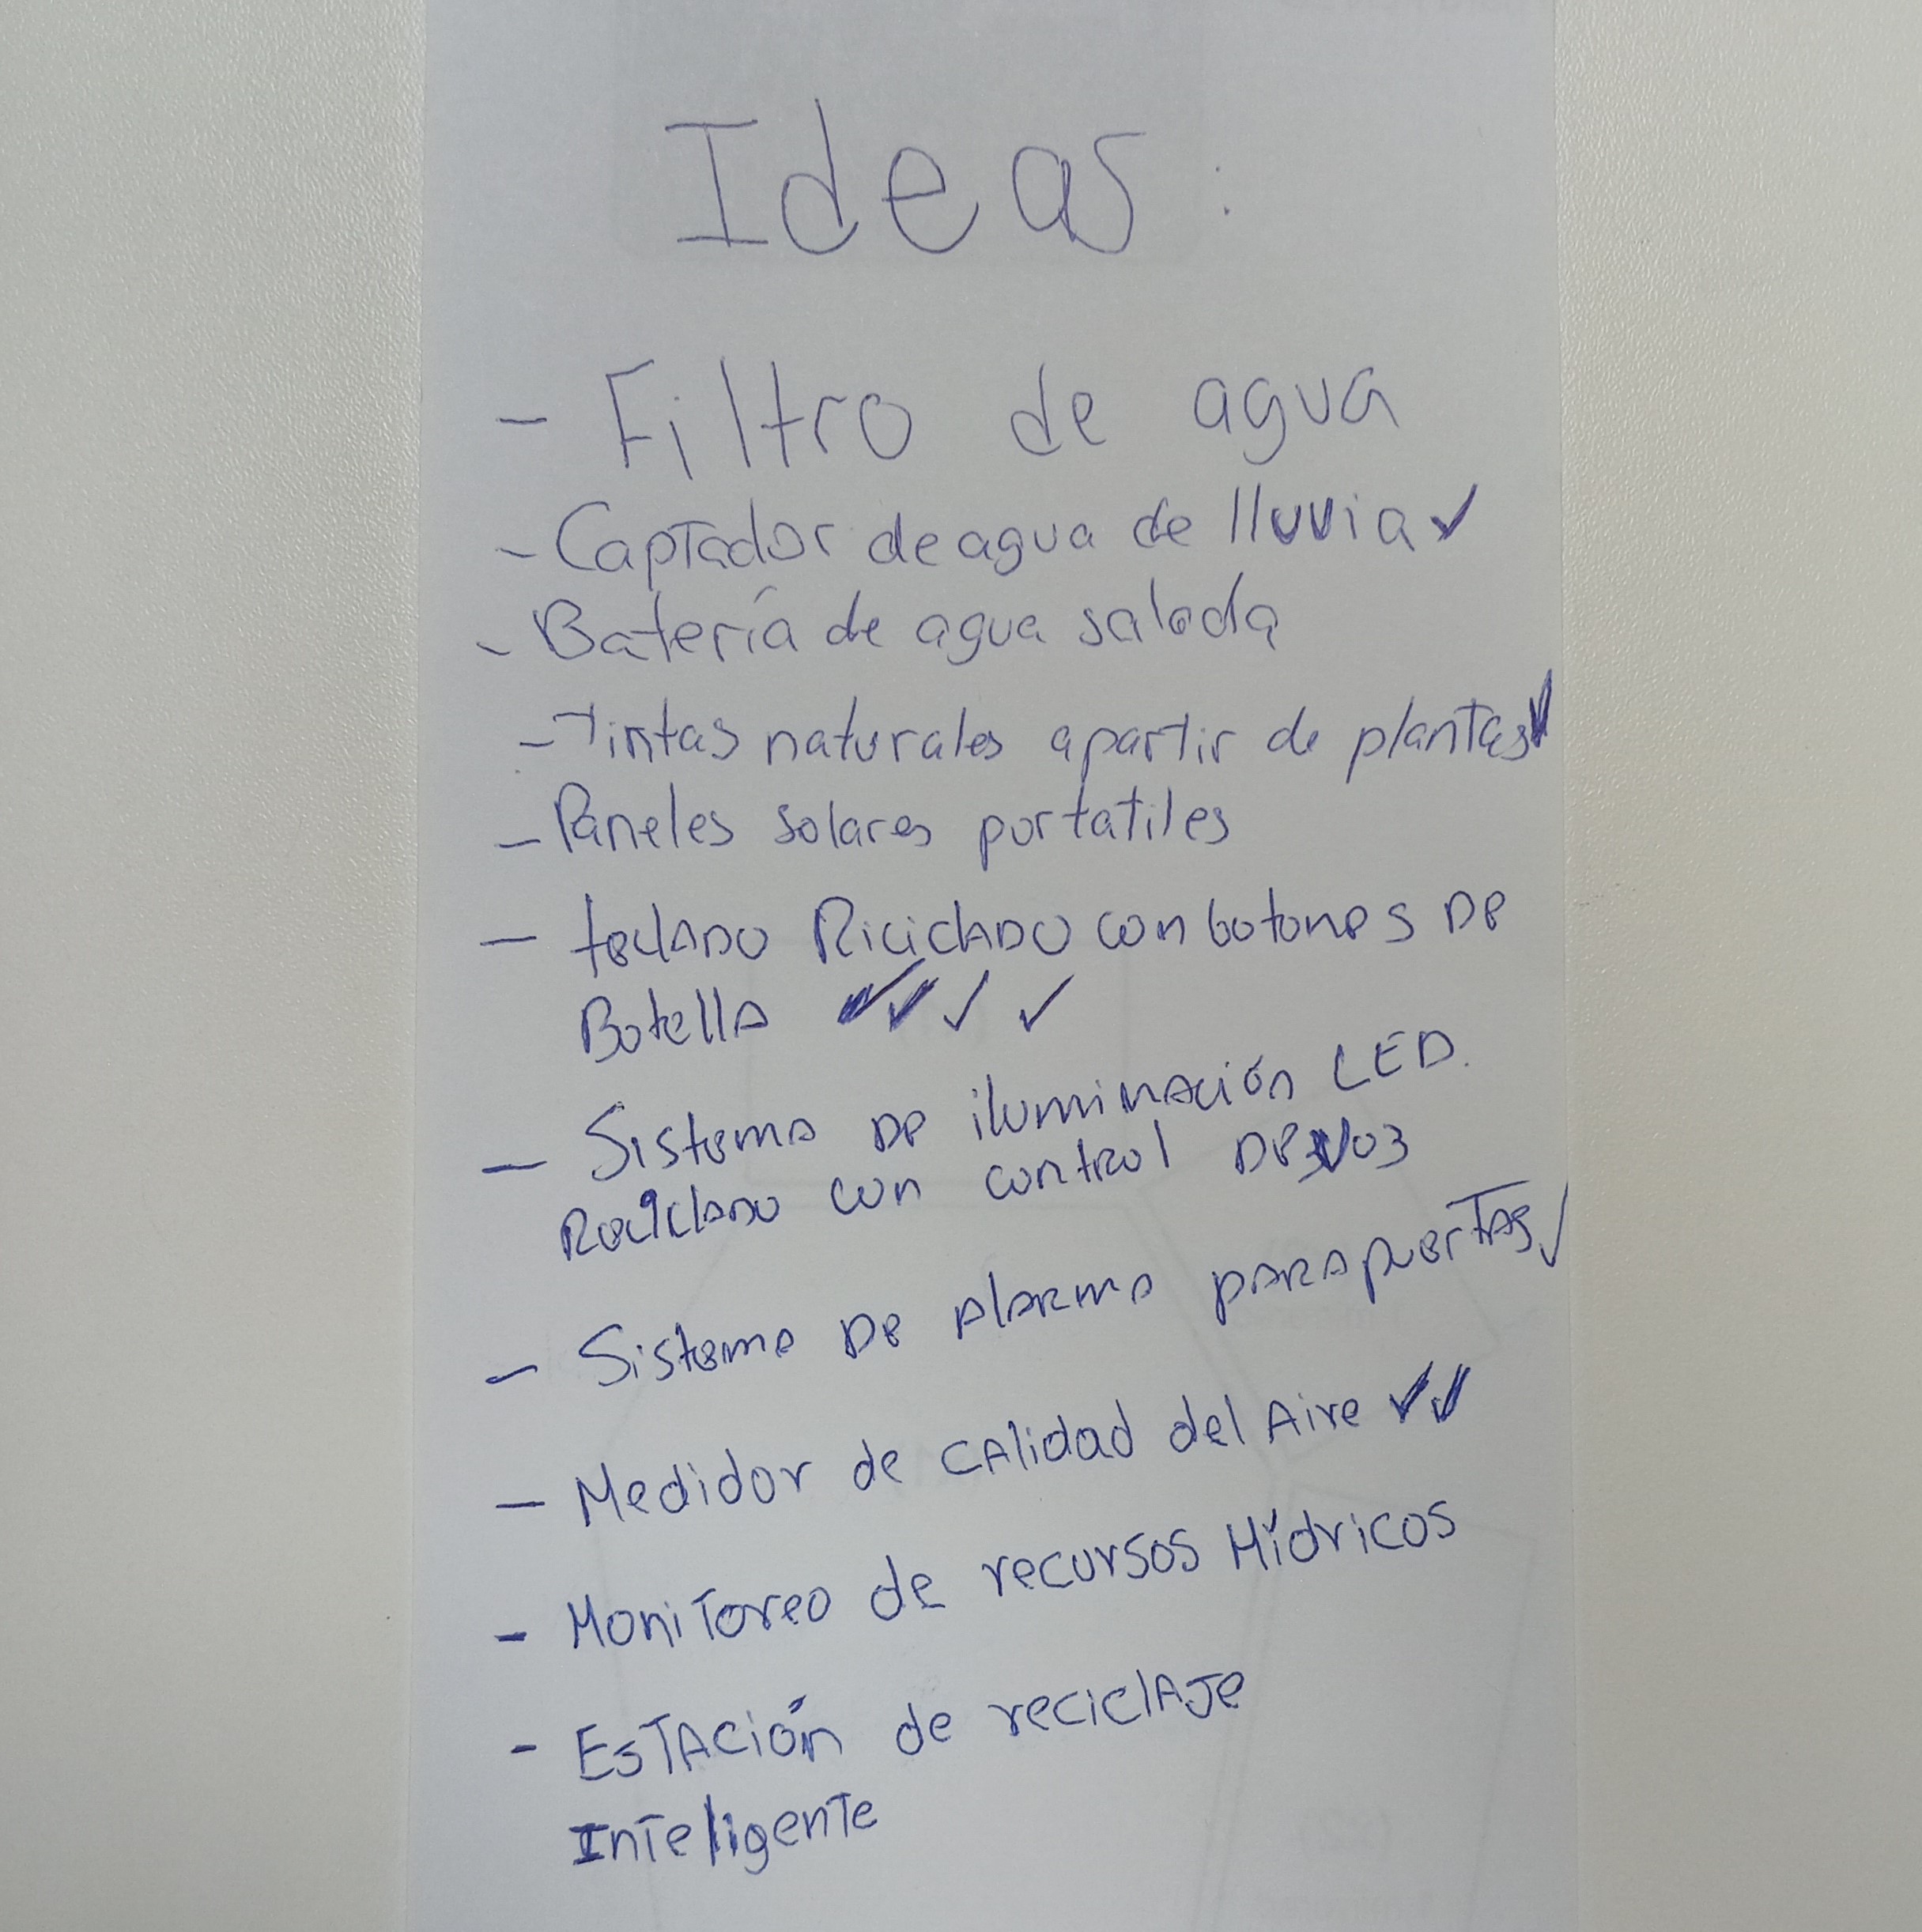 Ideas:
- Filtro de agua
- Captador de agua de lluvia ✓
- Batería de agua salada
- Tintas naturales apartir de plantas ✓
- Paneles solares portatiles
- teclADO RiciclADO con botones DE
BotellA ✓✓✓✓
- SistemA DE iluminAción LED.
Reciclado con control DE voz
- SistemA DE AlARmA pARA puertAs ✓
- Medidor de cAlidad del Aire ✓✓
- MoniToreo de recursos Hídricos
- EsTAción de reciclAJe
InTeligenTe